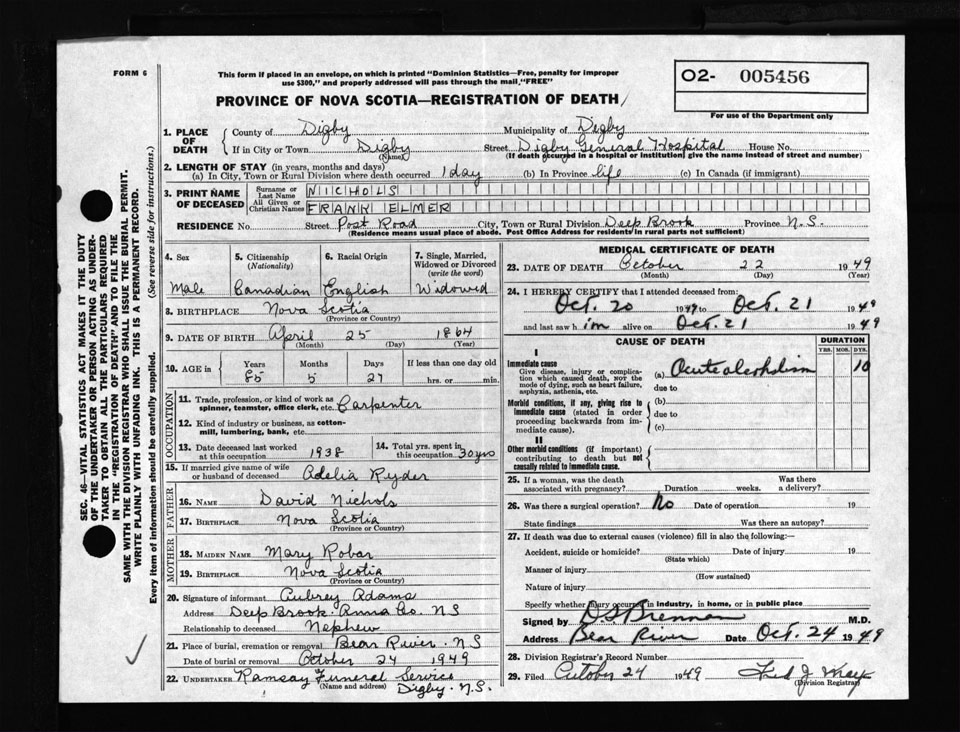 FORM 6
This form if placed in an envelope, on which is printed "Dominion Statistics—Free, penalty for improper
use $300," and properly addressed will pass through the mail, "FREE"
O2- 005456
For use of the Department only
PROVINCE OF NOVA SCOTIA—REGISTRATION OF DEATH
1. PLACE OF DEATH { County of Digby Municipality of Digby
If in City or Town Digby Street Digby General Hospital House No.
(Name) (If death occurred in a hospital or institution, give the name instead of street and number)
2. LENGTH OF STAY (in years, months and days)
(a) In City, Town or Rural Division where death occurred 1 day (b) In Province life (c) In Canada (if immigrant)
3. PRINT NAME OF DECEASED { Surname or Last Name NICHOLS
All Given or Christian Names FRANK ELMER
RESIDENCE No. Street Post Road City, Town or Rural Division Deep Brook Province N.S.
(Residence means usual place of abode. Post Office Address for residents in rural parts not sufficient)
4. Sex 5. Citizenship (Nationality) 6. Racial Origin 7. Single, Married, Widowed or Divorced (write the word)
Male Canadian English Widowed
8. BIRTHPLACE Nova Scotia
(Province or Country)
9. DATE OF BIRTH April 25 1864
(Month) (Day) (Year)
10. AGE in { Years Months Days If less than one day old
85 5 27 hrs. or min.
OCCUPATION
11. Trade, profession, or kind of work as
spinner, teamster, office clerk, etc. Carpenter
12. Kind of industry or business, as cotton-
mill, lumbering, bank, etc.
13. Date deceased last worked at this occupation 1938 14. Total yrs. spent in this occupation 30 yrs
15. If married give name of wife
or husband of deceased Adelia Ryder
FATHER
16. NAME David Nichols
17. BIRTHPLACE Nova Scotia
(Province or Country)
MOTHER
18. MAIDEN NAME Mary Robar
19. BIRTHPLACE Nova Scotia
(Province or Country)
20. Signature of informant Aubrey Adams
Address Deep Brook Anna Co. N S
Relationship to deceased Nephew
21. Place of burial, cremation or removal Bear River. N S
Date of burial or removal October 24 1949
22. UNDERTAKER Ramsay Funeral Service
(Name and address) Digby. N.S.
MEDICAL CERTIFICATE OF DEATH
23. DATE OF DEATH October 22 1949
(Month) (Day) (Year)
24. I HEREBY CERTIFY that I attended deceased from:
Oct. 20 1949 to Oct. 21 1949
and last saw him alive on Oct. 21 1949
CAUSE OF DEATH DURATION
YRS. MOS. DYS.
I
Immediate cause (a) Acute alcoholism 10
Give disease, injury or complica-
tion which caused death, not the
mode of dying, such as heart failure,
asphyxia, asthenia, etc.
due to
Morbid conditions, if any, giving rise to
immediate cause (stated in order
proceeding backwards from im-
mediate cause).
(b)
due to
(c)
II
Other morbid conditions (if important)
contributing to death but not
causally related to immediate cause.
25. If a woman, was the death associated with pregnancy? Duration weeks. Was there a delivery?
26. Was there a surgical operation? No Date of operation 19
State findings Was there an autopsy?
27. If death was due to external causes (violence) fill in also the following:—
Accident, suicide or homicide? Date of injury 19
(State which)
Manner of injury
(How sustained)
Nature of injury
Specify whether injury occurred in industry, in home, or in public place
Signed by D S Brennan M.D.
Address Bear River Date Oct. 24 1949
28. Division Registrar's Record Number
29. Filed October 24 1949 Fred J.
(Division Registrar)
SEC. 46—VITAL STATISTICS ACT MAKES IT THE DUTY
OF THE UNDERTAKER OR PERSON ACTING AS UNDER-
TAKER TO OBTAIN ALL THE PARTICULARS REQUIRED
IN THE "REGISTRATION OF DEATH" AND TO FILE THE
SAME WITH THE DIVISION REGISTRAR WHO SHALL ISSUE THE BURIAL PERMIT.
WRITE PLAINLY WITH UNFADING INK. THIS IS A PERMANENT RECORD.
Every item of information should be carefully supplied. (See reverse side for instructions.)